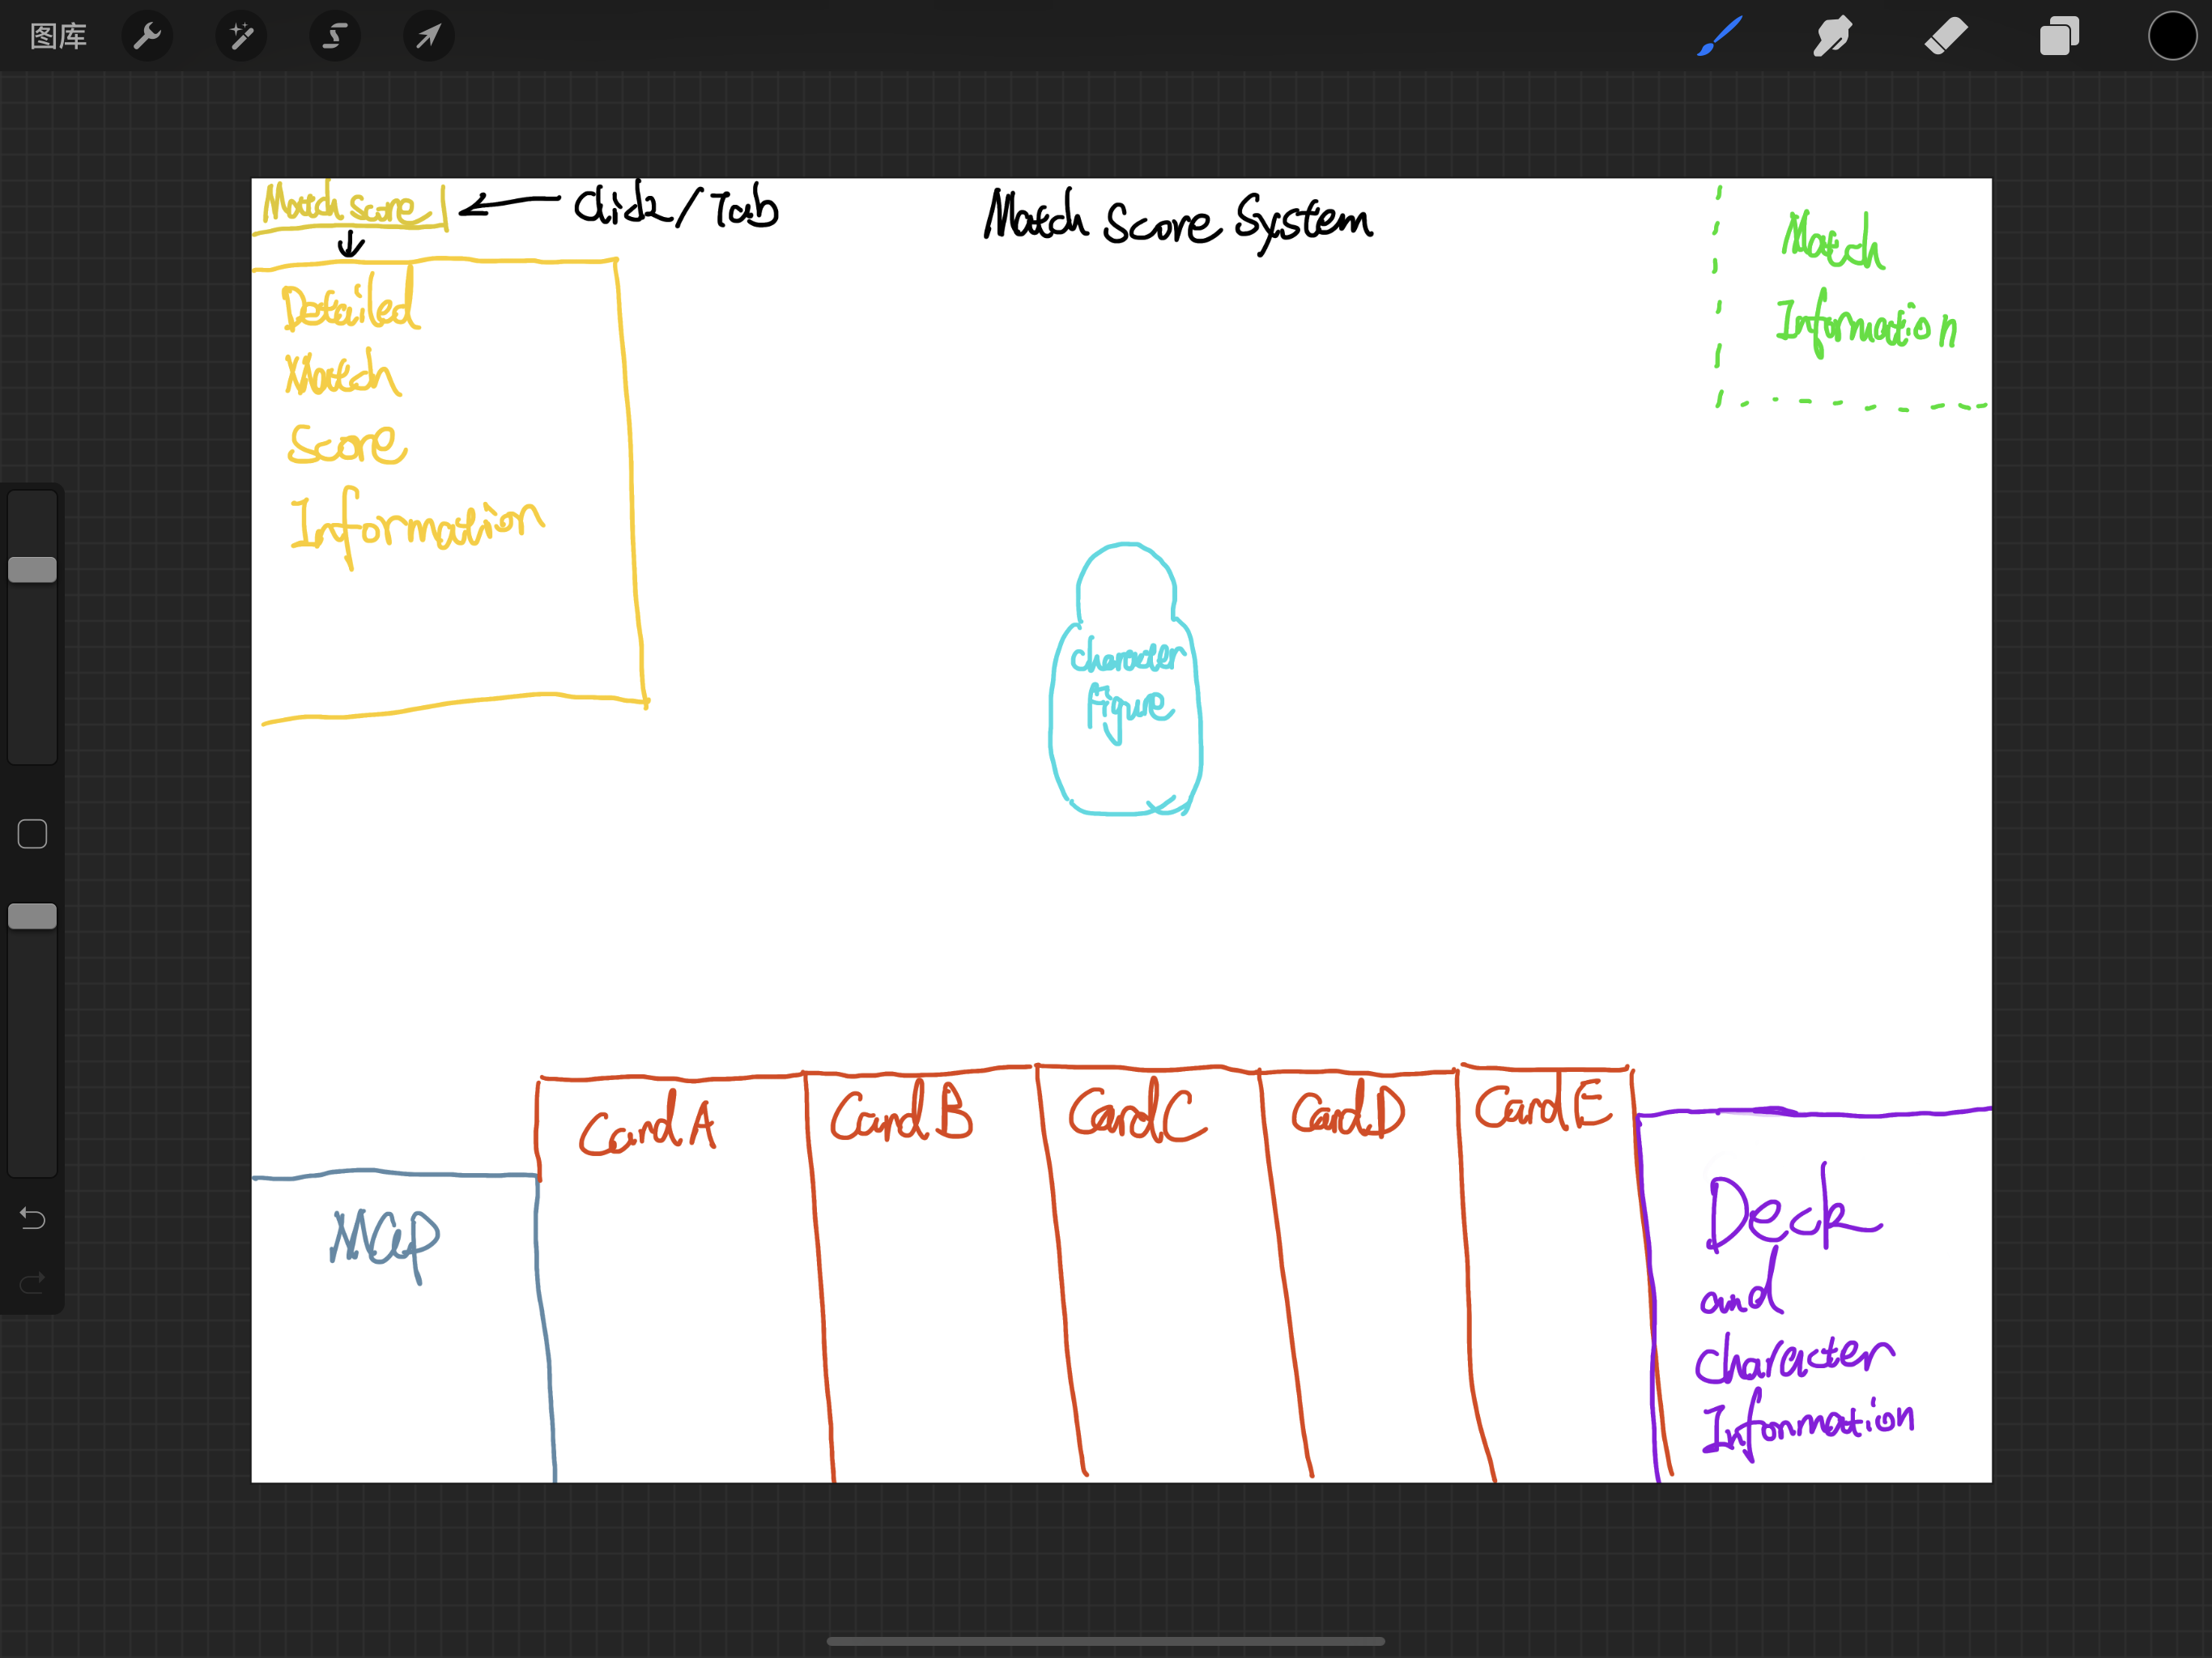 图库
Match Score
Click/Tab
Match Score System
Match
Information
Detailed
Match
Score
Information
Character
Figure
Card A
Card B
Card C
Card D
Card E
Map
Deck
and
Character
Information